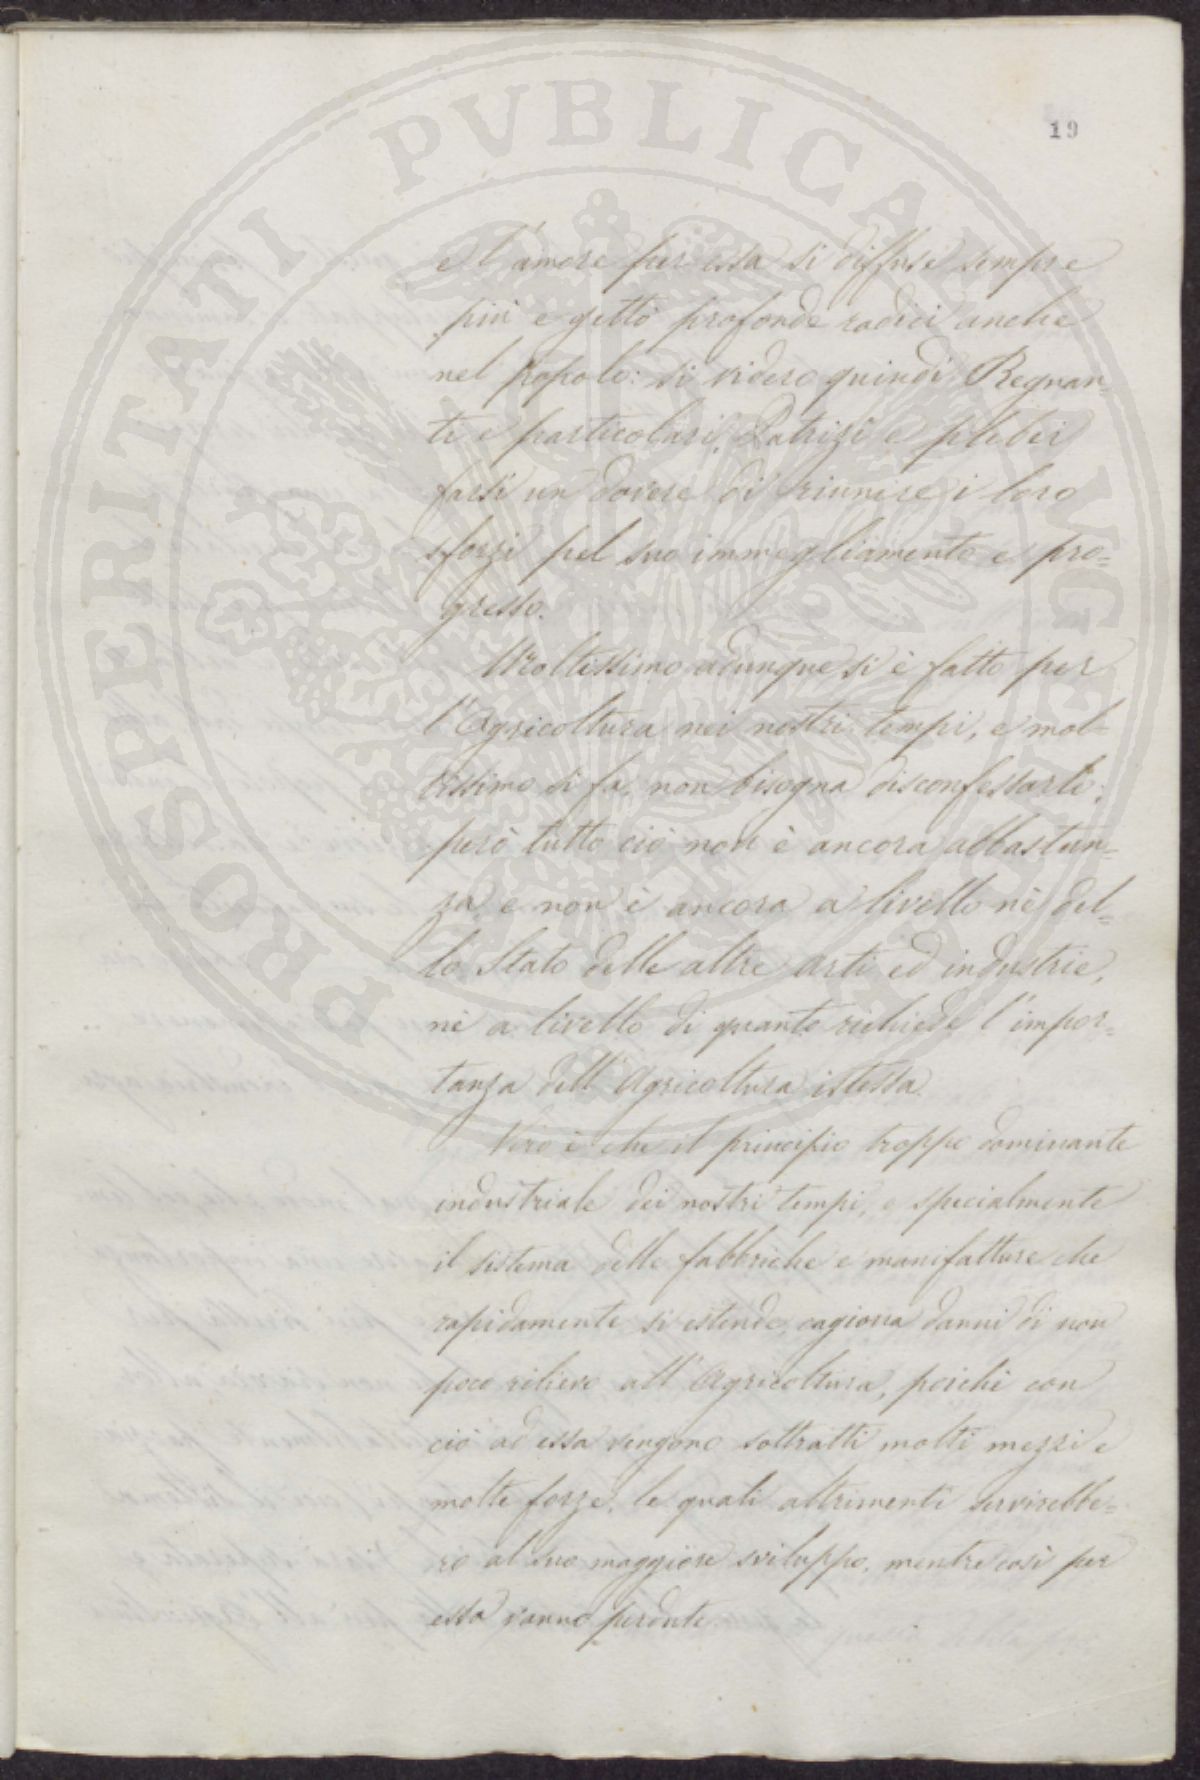 PROSPERITATI PVBLICAE AVGENDAE
19
e l'amore per essa si diffuse sempre
più e gettò profonde radici anche
nel popolo: si videro quindi Regnan-
ti e particolari, Patrizi e plebei
farsi un dovere di riunire i loro
sforzi pel suo immegliamento e pro=
gresso.
Moltissimo adunque si è fatto per
l'Agricoltura nei nostri tempi, e mol=
tissimo si fa, non bisogna disconfessarlo;
però tutto ciò non è ancora abbastan=
za e non è ancora a livello nè del=
lo Stato delle altre arti ed industrie,
nè a livello di quanto richiede l'impor=
tanza dell'Agricoltura istessa.
Vero è che il principio troppo dominante
industriale dei nostri tempi, e specialmente
il sistema delle fabbriche e manifatture che
rapidamente si estende, cagiona danni di non
poco rilievo all'Agricoltura, perchè con
ciò ad essa vengono sottratti molti mezzi e
molte forze, le quali altrimenti servirebbe=
ro al suo maggiore sviluppo, mentre così per
essa vanno perdute.